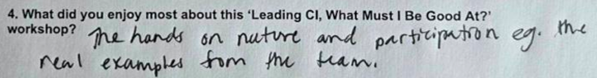 4. What did you enjoy most about this 'Leading CI, What Must I Be Good At?'
workshop? The hands on nature and participation eg. the
real examples from the team.